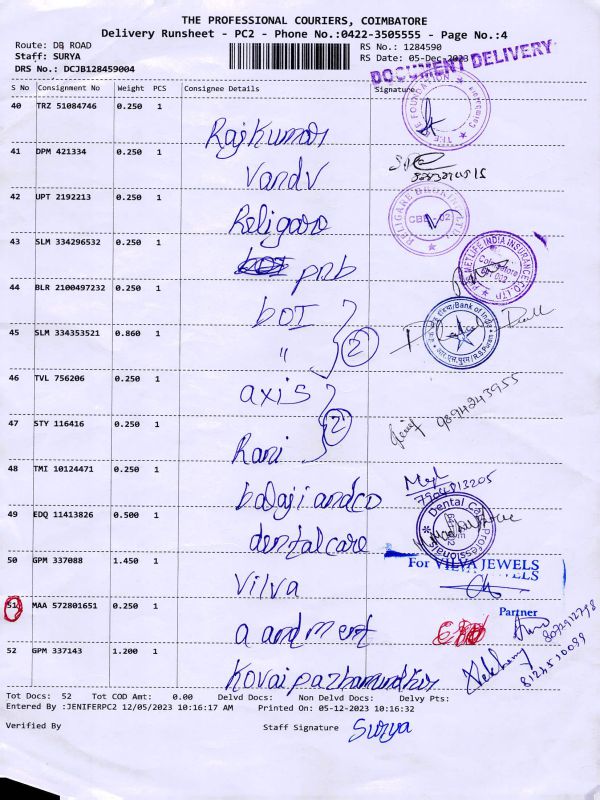 THE PROFESSIONAL COURIERS, COIMBATORE
Delivery Runsheet - PC2 - Phone No.:0422-3505555 - Page No.:4
Route: DB ROAD
RS No.: 1284590
Staff: SURYA
RS Date: 05-Dec-2023
DRS No.: DCJB128459004
DOCUMENT DELIVERY
S No Consignment No Weight PCS Consignee Details Signature
40 TRZ 51084746 0.250 1
Rajkumar
41 DPM 421334 0.250 1
Vandv
42 UPT 2192213 0.250 1
Religare
RELIGARE BROKING LTD
CBE - 02
43 SLM 334296532 0.250 1
pnb
PNB METLIFE INDIA INSURANCE CO. LTD
Coimbatore
44 BLR 2100497232 0.250 1
BOI
Bank of India
R.S.Puram
45 SLM 334353521 0.860 1
"
2
46 TVL 756206 0.250 1
axis
9894243955
47 STY 116416 0.250 1
Rani
2
48 TMI 10124471 0.250 1
balaji and co
7904813205
49 EDQ 11413826 0.500 1
dental care
Dental Care Professionals
50 GPM 337088 1.450 1
Vilva
For VILVA JEWELS
Partner
51 MAA 572801651 0.250 1
a and ment
52 GPM 337143 1.200 1
Kovai pazhamudhir
8124510099
Tot Docs: 52 Tot COD Amt: 0.00 Delvd Docs: Non Delvd Docs: Delvy Pts:
Entered By :JENIFERPC2 12/05/2023 10:16:17 AM Printed On: 05-12-2023 10:16:32
Verified By Staff Signature Surya